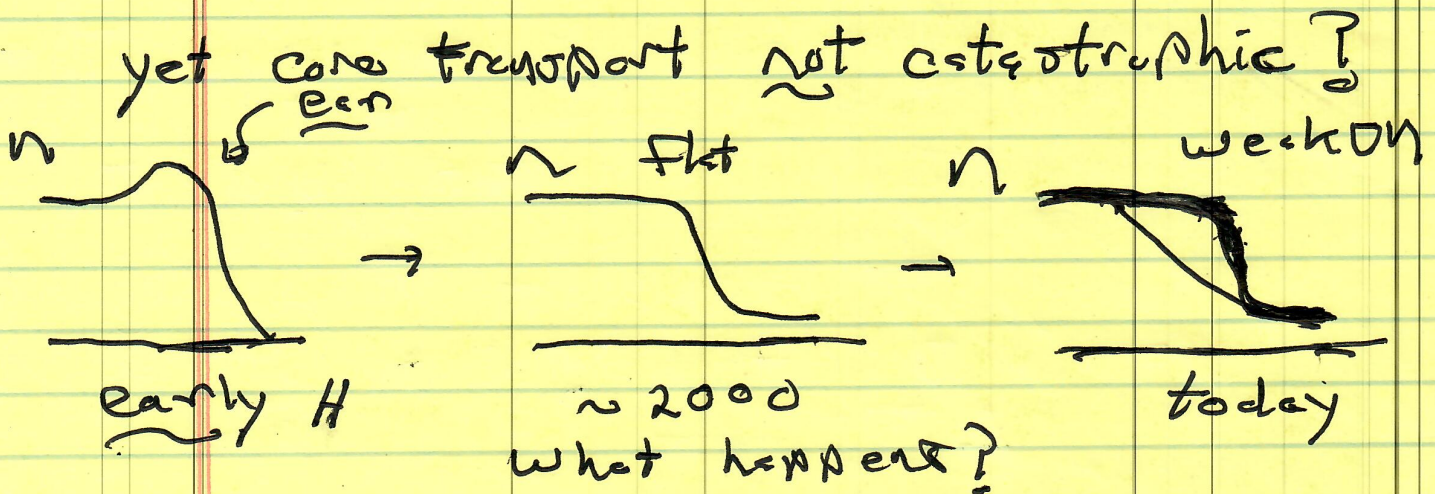 yet core transport not catastrophic?
ear
n
n flat
n
weak ∇n
early H
~ 2000
today
what happens?